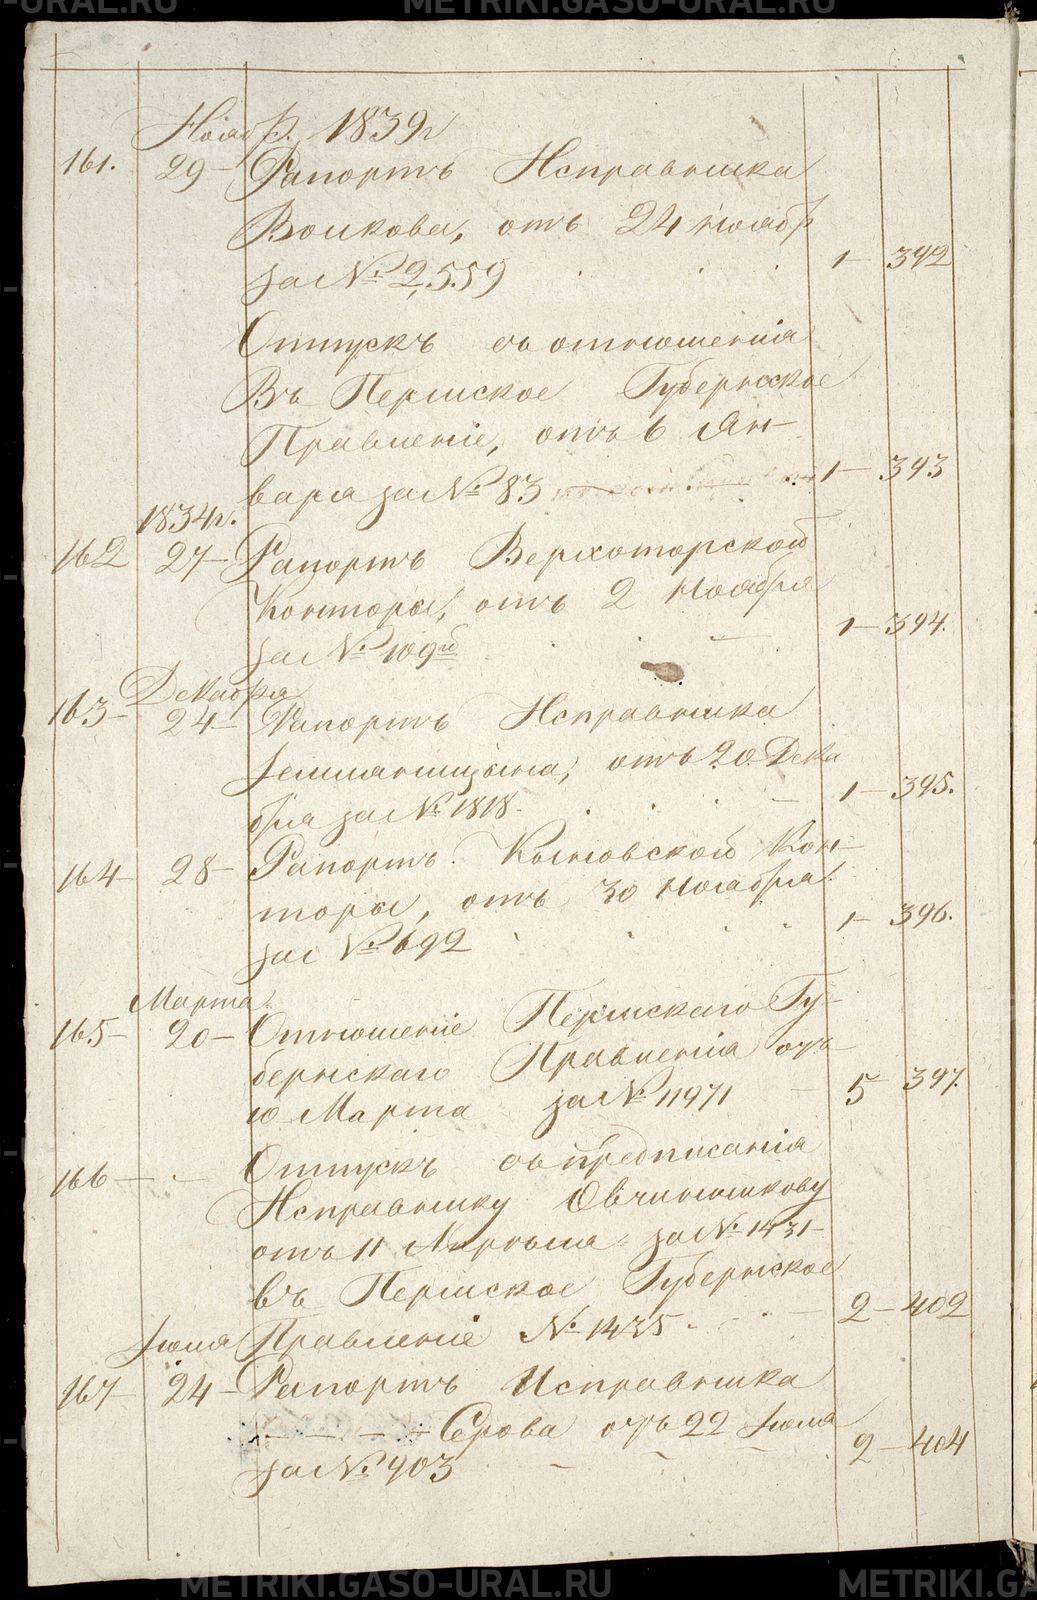 METRIKI.GASO-URAL.RU METRIKI.GASO-URAL.RU
Ноябр. 1839г
161. 29 - Рапортъ Исправника
Волкова, отъ 24 Ноябр
за № 2,559 1 - 392
Отпускъ съ отношенія
Въ Пермское Губернское
Правленіе, отъ 6 Ян-
варя за № 83 1 - 393
1834г.
162 27 - Рапортъ Верхоторской
Конторы, отъ 2 Ноября
за № 109й 1 - 394.
Декабря
163 - 24 - Рапортъ Исправника
Земланицына, отъ 20 Дека
бря за № 1818. 1 - 395.
164 - 28 - Рапортъ Кыновской Кон-
торы, отъ 30 Ноабря
за № 692 1 - 396.
Марта
165 - 20 - Отношеніе Пермскаго Гу-
бернскаго Правленія отъ
10 Марта за № 11971 - 5 - 397.
166 - - Отпускъ съ предписанія
Исправнику Овчинникову
отъ 11 Апрѣля за № 1431 -
въ Пермское Губернское
Правленіе № 1435 - 2 - 402
Іюля
167 - 24 - Рапортъ Исправника
Серова отъ 22 Іюля
за № 903 2 - 404
METRIKI.GASO-URAL.RU METRIKI.GA